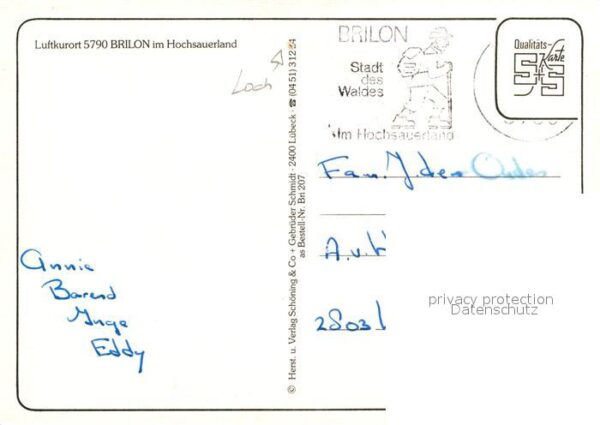 Luftkurort 5790 BRILON im Hochsauerland
Loch
© Herst. u. Verlag Schöning & Co + Gebrüder Schmidt · 2400 Lübeck · ☎ (0451) 31234
as Bestell-Nr. Bri 207
BRILON
Stadt
des
Waldes
Im Hochsauerland
Qualitäts-
Karte
S+S
Fam. J. den
A.v.
2803
privacy protection
Datenschutz
Annie
Barend
Inge
Eddy